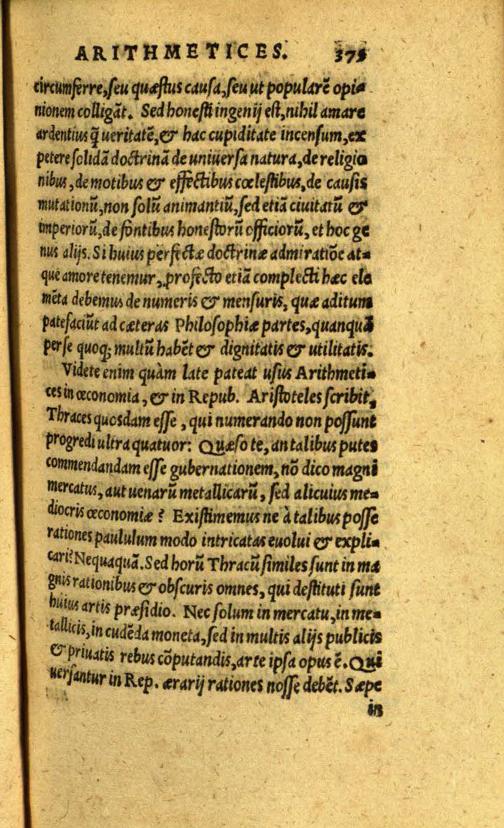 ARITHMETICES. 375
circumferre, seu quæstus causa, seu ut popularē opi-
nionem colligāt. Sed honesti ingenij est, nihil amare
ardentius q̃ ueritatē, & hac cupiditate incensum, ex
petere solidā doctrinā de uniuersa natura, de religio
nibus, de motibus & effectibus cœlestibus, de causis
mutationū, non solū animantiū, sed etiā ciuitatū &
imperiorū, de fontibus honestorū officiorū, et hoc ge
nus alijs. Si huius perfectæ doctrinæ admiratiōe at-
que amore tenemur, profecto etiā complecti hæc ele
mēta debemus de numeris & mensuris, quæ aditum
patefaciūt ad cæteras Philosophiæ partes, quanquā
per se quoq; multū habēt & dignitatis & utilitatis.
Videte enim quàm late pateat usus Arithmeti-
ces in œconomia, & in Repub. Aristoteles scribit,
Thraces quosdam esse, qui numerando non possunt
progredi ultra quatuor: Quæso te, an talibus putes
commendandam esse gubernationem, nō dico magni
mercatus, aut uenarū metallicarū, sed alicuius me-
diocris œconomiæ? Existimemus ne à talibus posse
rationes paululum modo intricatas euolui & expli-
cari? Nequaquā. Sed horū Thracū similes sunt in ma
gnis rationibus & obscuris omnes, qui destituti sunt
huius artis præsidio. Nec solum in mercatu, in me-
tallicis, in cudēda moneta, sed in multis alijs publicis
& priuatis rebus cōputandis, arte ipsa opus ē. Qui
uersantur in Rep. ærarij rationes nosse debēt. Sæpe
in